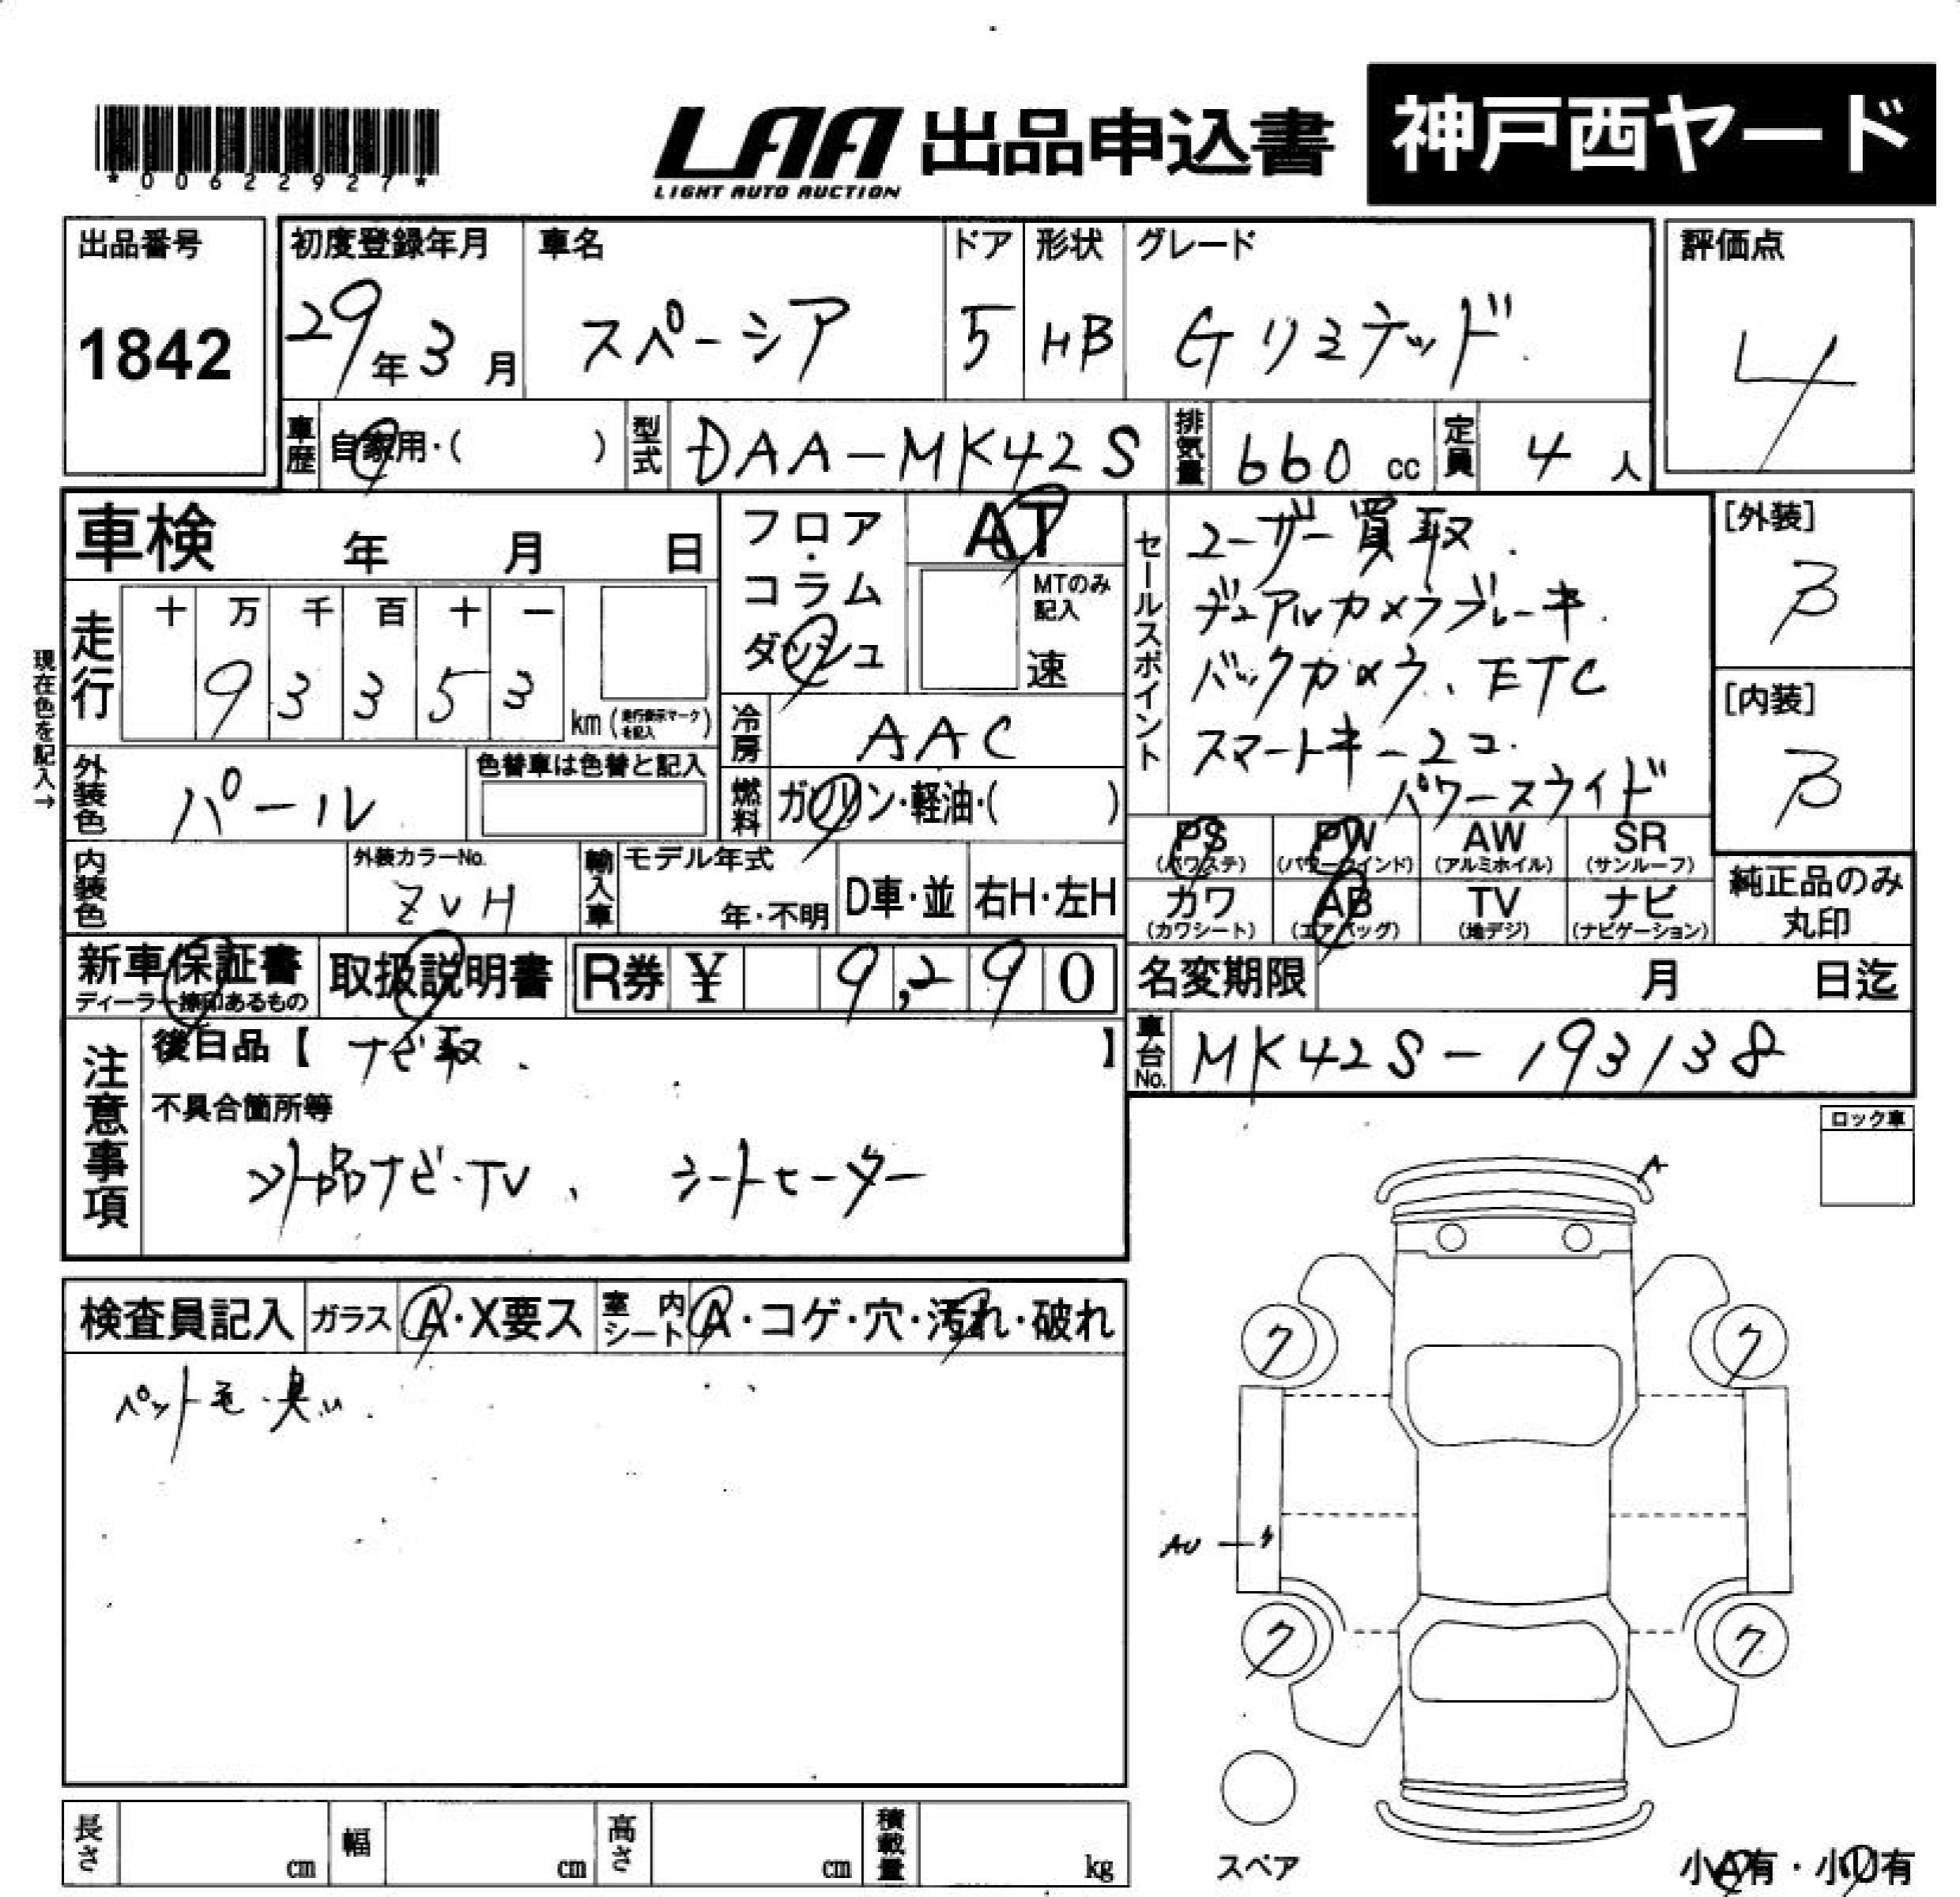 *00622927*
LAA 出品申込書 神戸西ヤード
LIGHT AUTO AUCTION
出品番号
1842
初度登録年月
29年3月
車名
スペーシア
ドア
5
形状
HB
グレード
Gリミテッド
評価点
4
車歴 自家用・( )
型式 DAA-MK42S
排気量 660 cc
定員 4 人
車検 年 月 日
フロア・コラム ダッシュ
AT
MTのみ記入
速
セールスポイント
ユーザー買取.
デュアルカメラブレーキ.
バックカメラ、ETC
スマートキー2コ.
パワースライド
[外装]
B
[内装]
B
現在色を記入→
走行
十 万 千 百 十 一
9 3 3 5 3
km (走行表示マークを記入)
冷房 AAC
外装色 パール
色替車は色替と記入
燃料 ガソリン・軽油・( )
内装色
外装カラーNo.
ZVH
輸入車
モデル年式
年・不明
D車・並
右H・左H
PS (パワステ)
PW (パワーウインド)
AW (アルミホイル)
SR (サンルーフ)
カワ (カワシート)
AB (エアバッグ)
TV (地デジ)
ナビ (ナビゲーション)
純正品のみ丸印
新車保証書
ディーラー捺印あるもの
取扱説明書
R券 ¥ 9,290
名変期限 月 日迄
車台No. MK42S-193138
注意事項
後日品【 ナビ取. 】
不具合箇所等
ソト品ナビ・TV、 シートヒーター
ロック車
検査員記入
ガラス A・X要ス
室内シート A・コゲ・穴・汚れ・破れ
ペット毛・臭い.
A
ク ク
AU
ク ク
スペア
小A有・小U有
長さ cm
幅 cm
高さ cm
積載量 kg